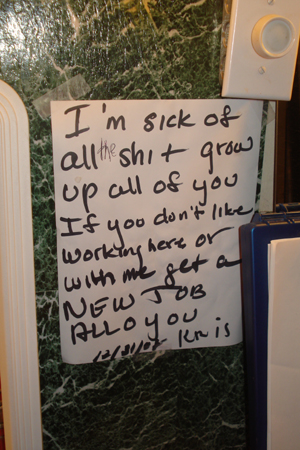 I'm sick of
all the shit grow
up all of you
If you don't like
working here or
with me get a
NEW JOB
ALL O YOU
12/31/05 Kris